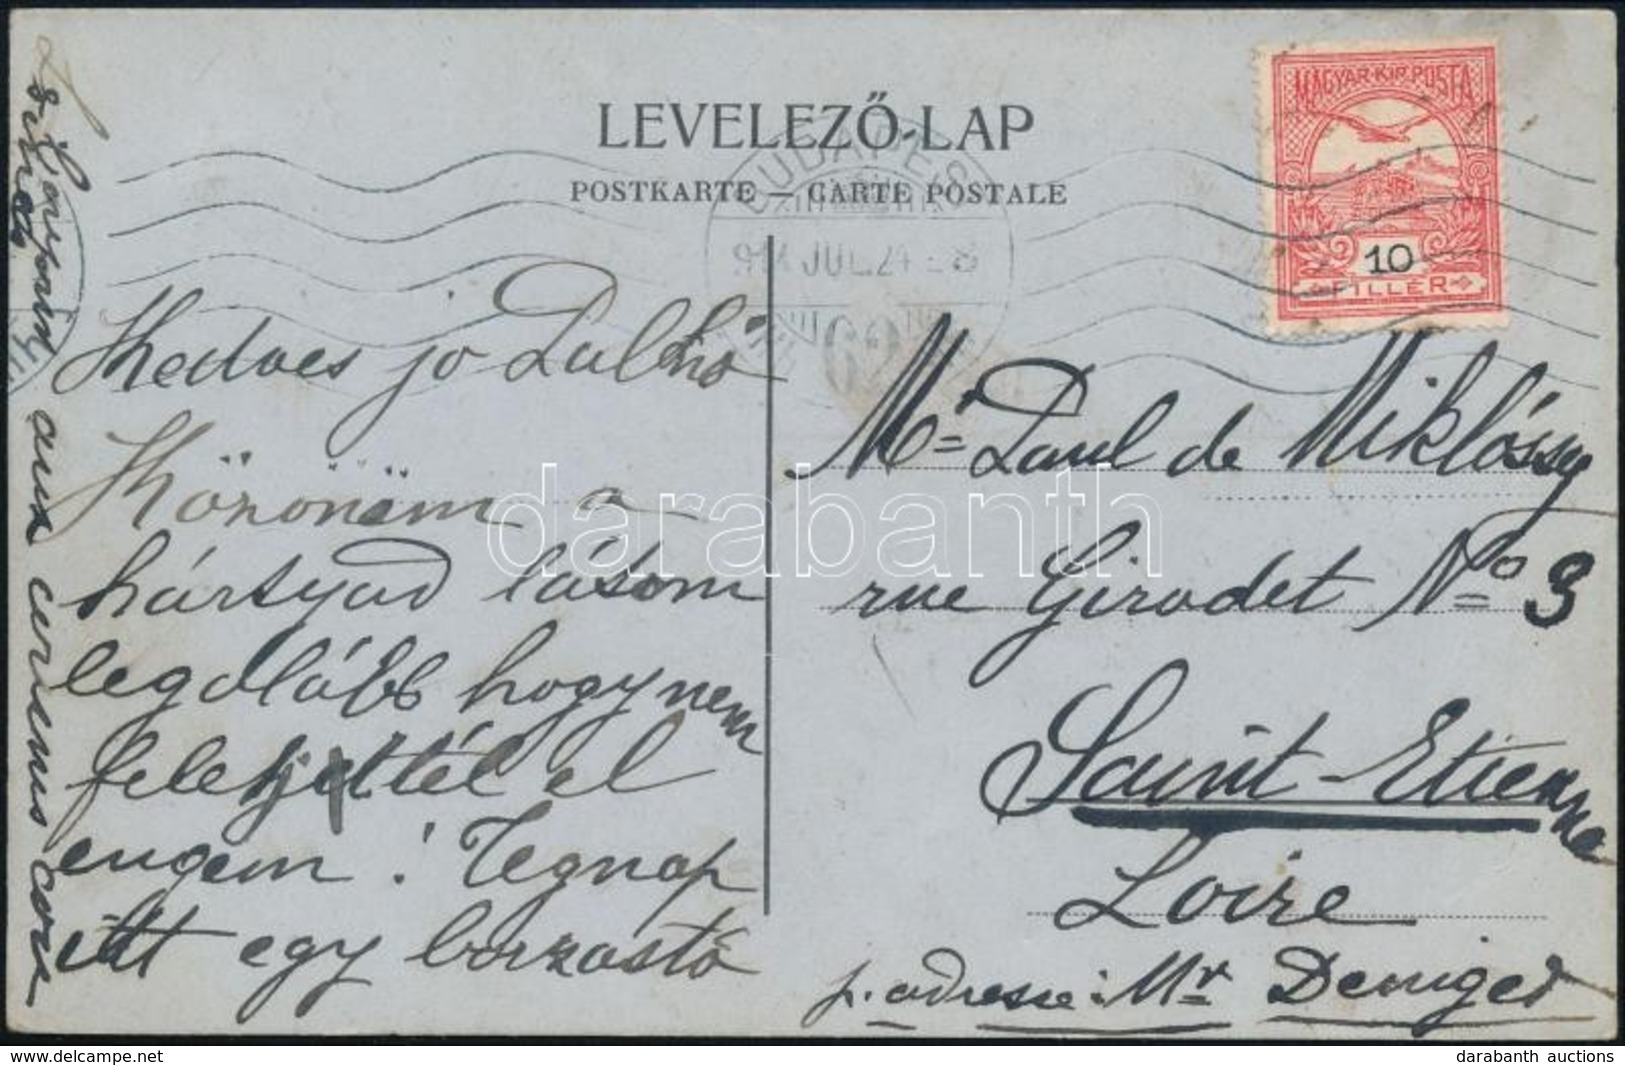 LEVELEZŐ-LAP
POSTKARTE — CARTE POSTALE
BUDAPEST
914 JUL. 24
62
MAGYAR·KIR·POSTA
10
FILLÉR
Kedves jó
Köszönöm a
hártyád látom
legalább hogy nem
felejtettél el
engem! Tegnap
itt egy borzasztó
Mr Paul de Miklóssy
rue Girodet No 3
Saint-Etienne
Loire
p. adresse: Mr
darabanth
darabanth auctions